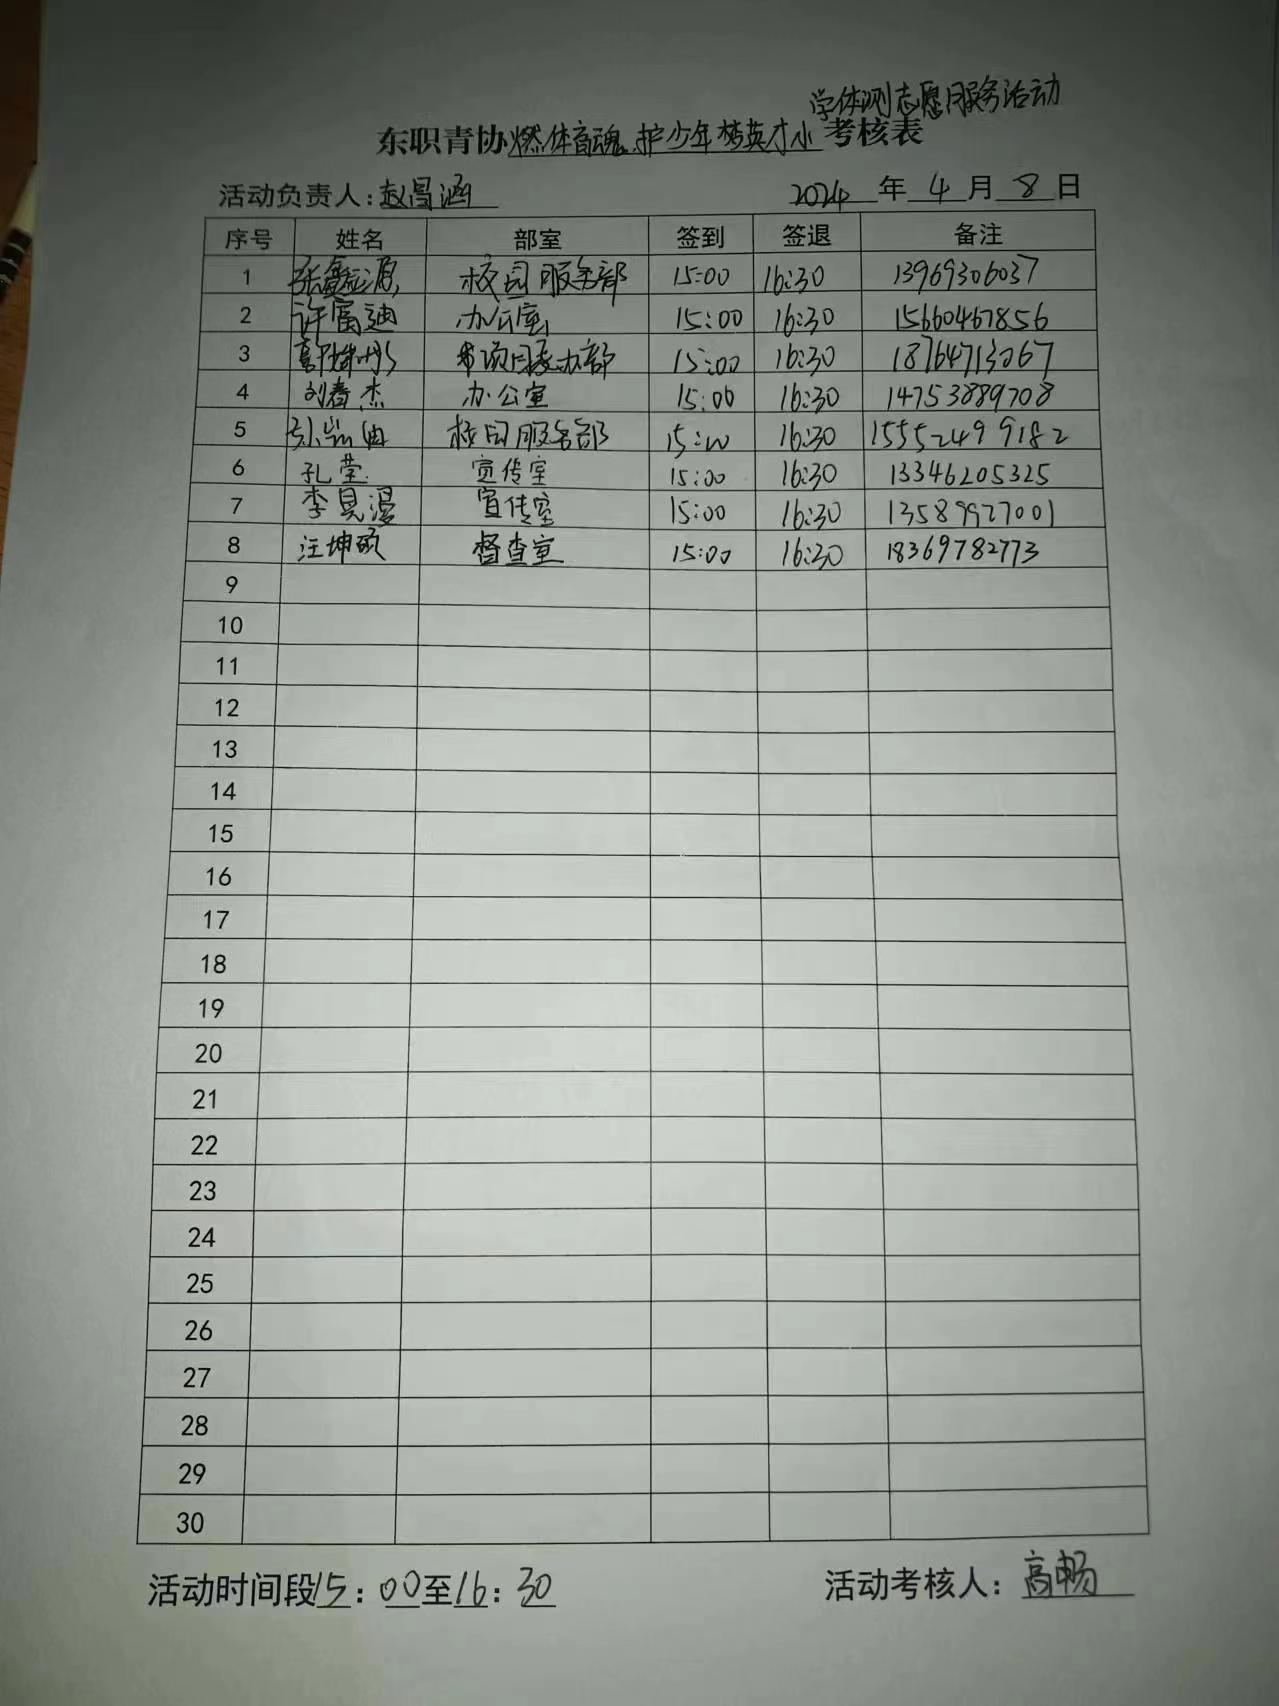 学体测志愿服务活动
东职青协燃体育魂,护少年梦英才小考核表
活动负责人:赵昌涵 2024年4月8日
序号 姓名 部室 签到 签退 备注
1 张鑫源 校园服务部 15:00 16:30 13969306037
2 许富迪 办公室 15:00 16:30 15660467856
3 15:00 16:30 18764713067
4 刘春杰 办公室 15:00 16:30 14753889708
5 校园服务部 15:00 16:30 15552499182
6 孔莹 宣传室 15:00 16:30 13346205325
7 李昊漫 宣传室 15:00 16:30 13589927001
8 汪坤硕 督查室 15:00 16:30 18369782773
9
10
11
12
13
14
15
16
17
18
19
20
21
22
23
24
25
26
27
28
29
30
活动时间段15:00至16:30 活动考核人:高畅